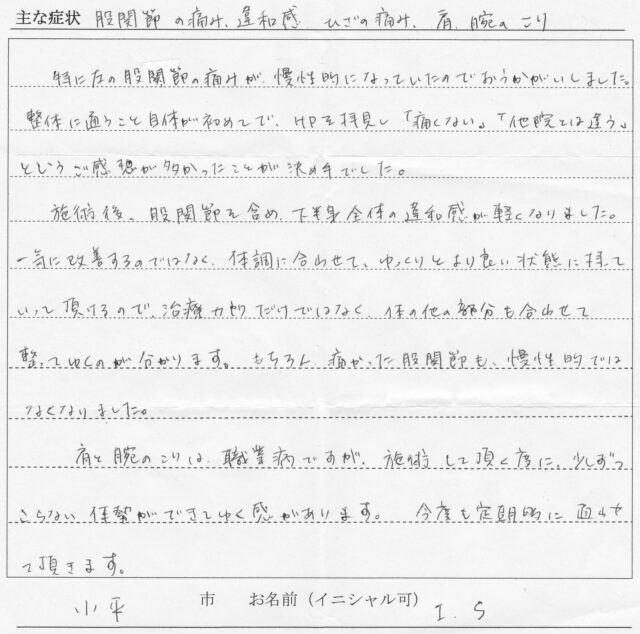 主な症状 股関節の痛み、違和感 ひざの痛み、肩、腕のこり
特に左の股関節の痛みが、慢性的になっていたのでおうかがいしました。
整体に通うこと自体が初めてで、HPを拝見し「痛くない」「他院とは違う」
というご感想が多かったことが決め手でした。
施術後、股関節を含め、下半身全体の違和感が軽くなりました。
一気に改善するのではなく、体調に合わせて、ゆっくりとより良い状態に持って
いって頂けるので、治療カ所だけではなく、体の他の部分も合わせて
整ってゆくのが分かります。もちろん、痛かった股関節も、慢性的では
なくなりました。
肩と腕のこりは、職業病ですが、施術して頂く度に、少しずつ
こらない体勢ができてゆく感があります。 今度も定期的に通わせ
て頂きます。
小平 市 お名前（イニシャル可） I.S